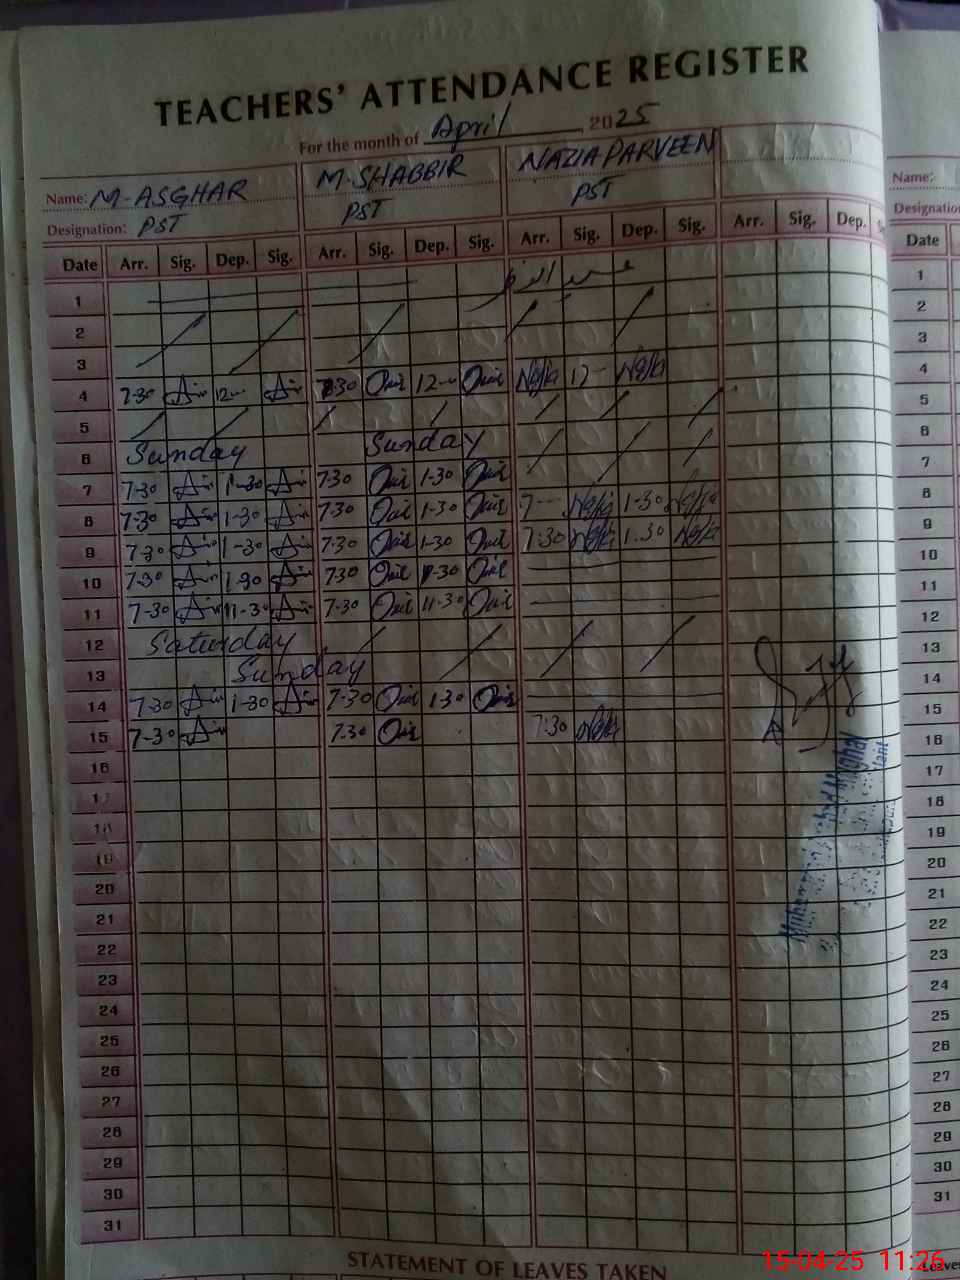 TEACHERS' ATTENDANCE REGISTER
For the month of April 2025
Name: M-ASGHAR M-SHABBIR NAZIA PARVEEN
Designation: PST PST PST
Date Arr. Sig. Dep. Sig. Arr. Sig. Dep. Sig. Arr. Sig. Dep. Sig. Arr. Sig. Dep.
1
2
3
4 7-30 12- 7-30 12- 12-
5
6 Sunday Sunday
7 7-30 1-30 7-30 1-30
8 7-30 1-30 7-30 1-30 7- 1-30
9 7-30 1-30 7-30 1-30 7:30 1.30
10 7-30 1-30 7-30 1-30
11 7-30 11-30 7-30 11-30
12 Saturday
13 Sunday
14 7-30 1-30 7-30 1-30
15 7-30 7-30 7:30
16
17
18
19
20
21
22
23
24
25
26
27
28
29
30
31
STATEMENT OF LEAVES TAKEN
Name:
Designation
Date
1
2
3
4
5
6
7
8
9
10
11
12
13
14
15
16
17
18
19
20
21
22
23
24
25
26
27
28
29
30
31
Leaves
15-04-25 11:26